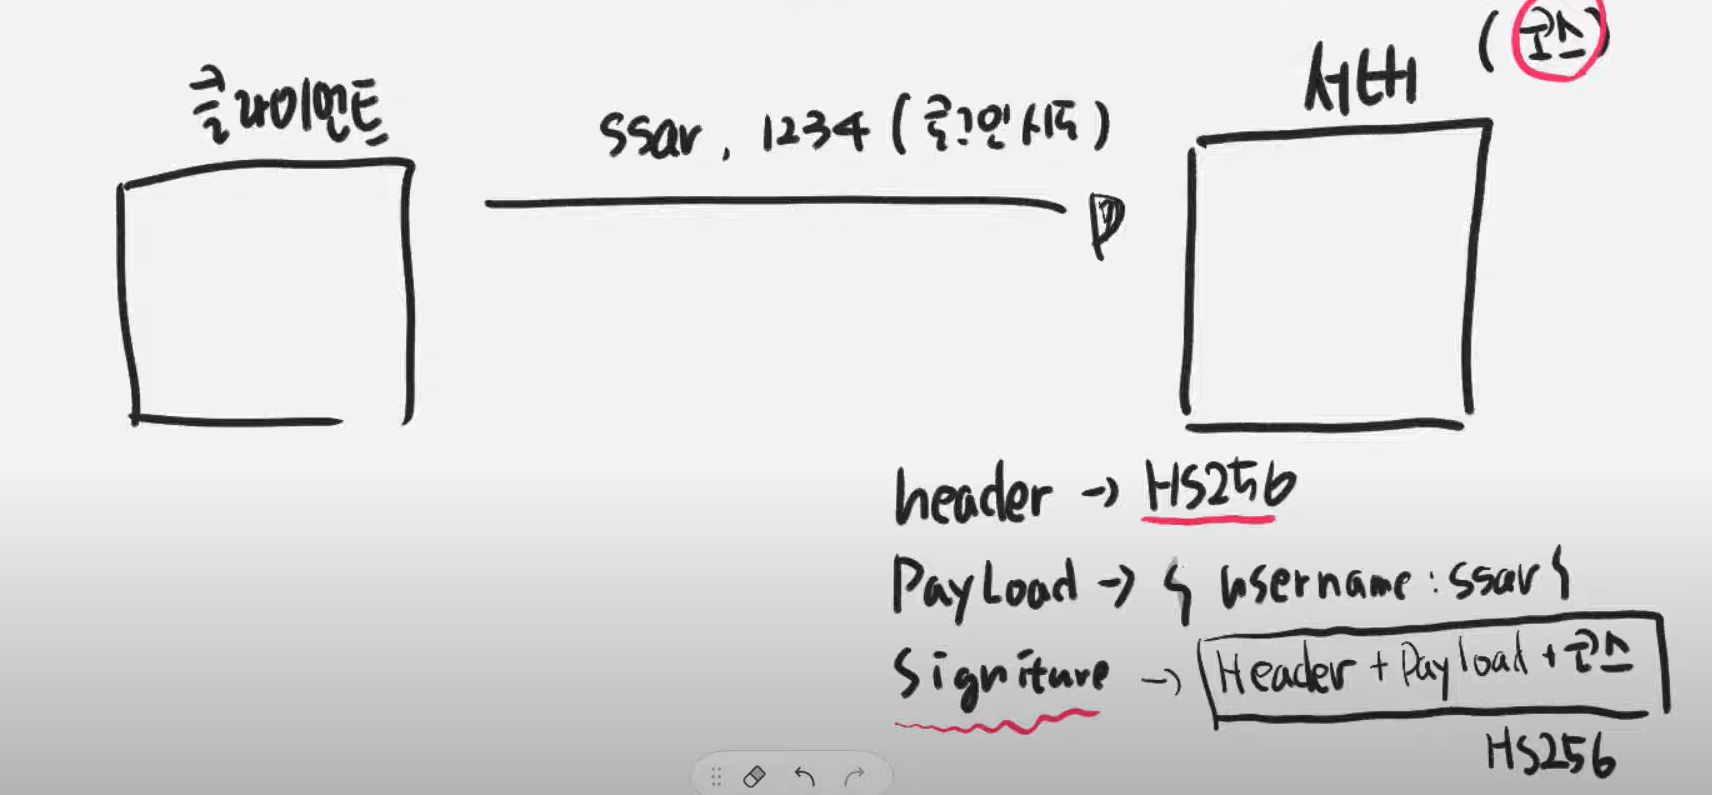 클라이언트
ssar, 1234 (로그인시도)
서버 (코스)
header → HS256
PayLoad → { username : ssar }
Signiture → Header + Payload + 코스
HS256